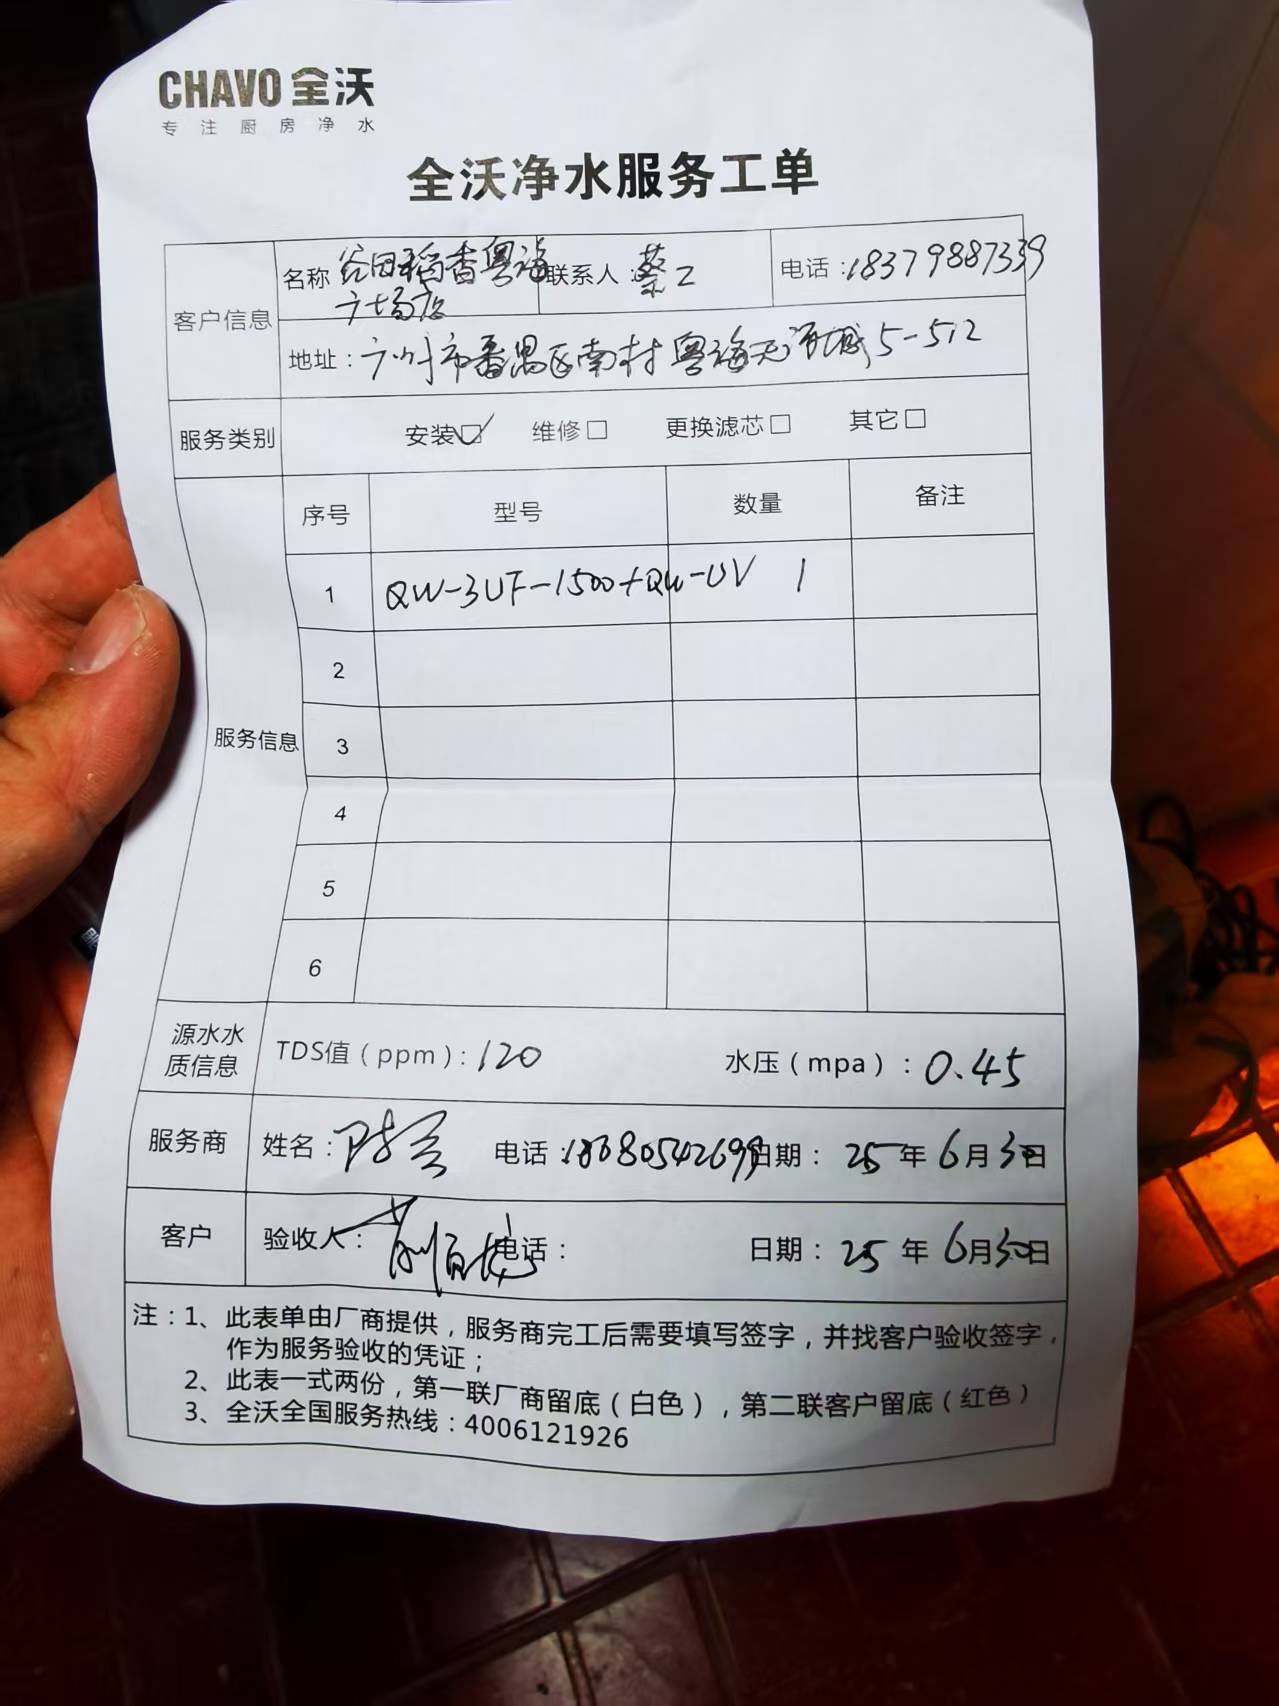 CHAVO 全沃
专注厨房净水
全沃净水服务工单
客户信息
名称 谷田稻香粤海
广场店
联系人：蔡工
电话：18379887339
地址：广州市番禺区南村粤海天河城5-512
服务类别
安装☑ 维修□ 更换滤芯□ 其它□
服务信息
序号 型号 数量 备注
1 QW-3UF-1500+QW-UV 1
2
3
4
5
6
源水水
质信息
TDS值（ppm）：120 水压（mpa）：0.45
服务商 姓名： 电话：18680542699 日期：25年6月30日
客户 验收人： 电话： 日期：25年6月30日
注：1、此表单由厂商提供，服务商完工后需要填写签字，并找客户验收签字，
作为服务验收的凭证；
2、此表一式两份，第一联厂商留底（白色），第二联客户留底（红色）
3、全沃全国服务热线：4006121926